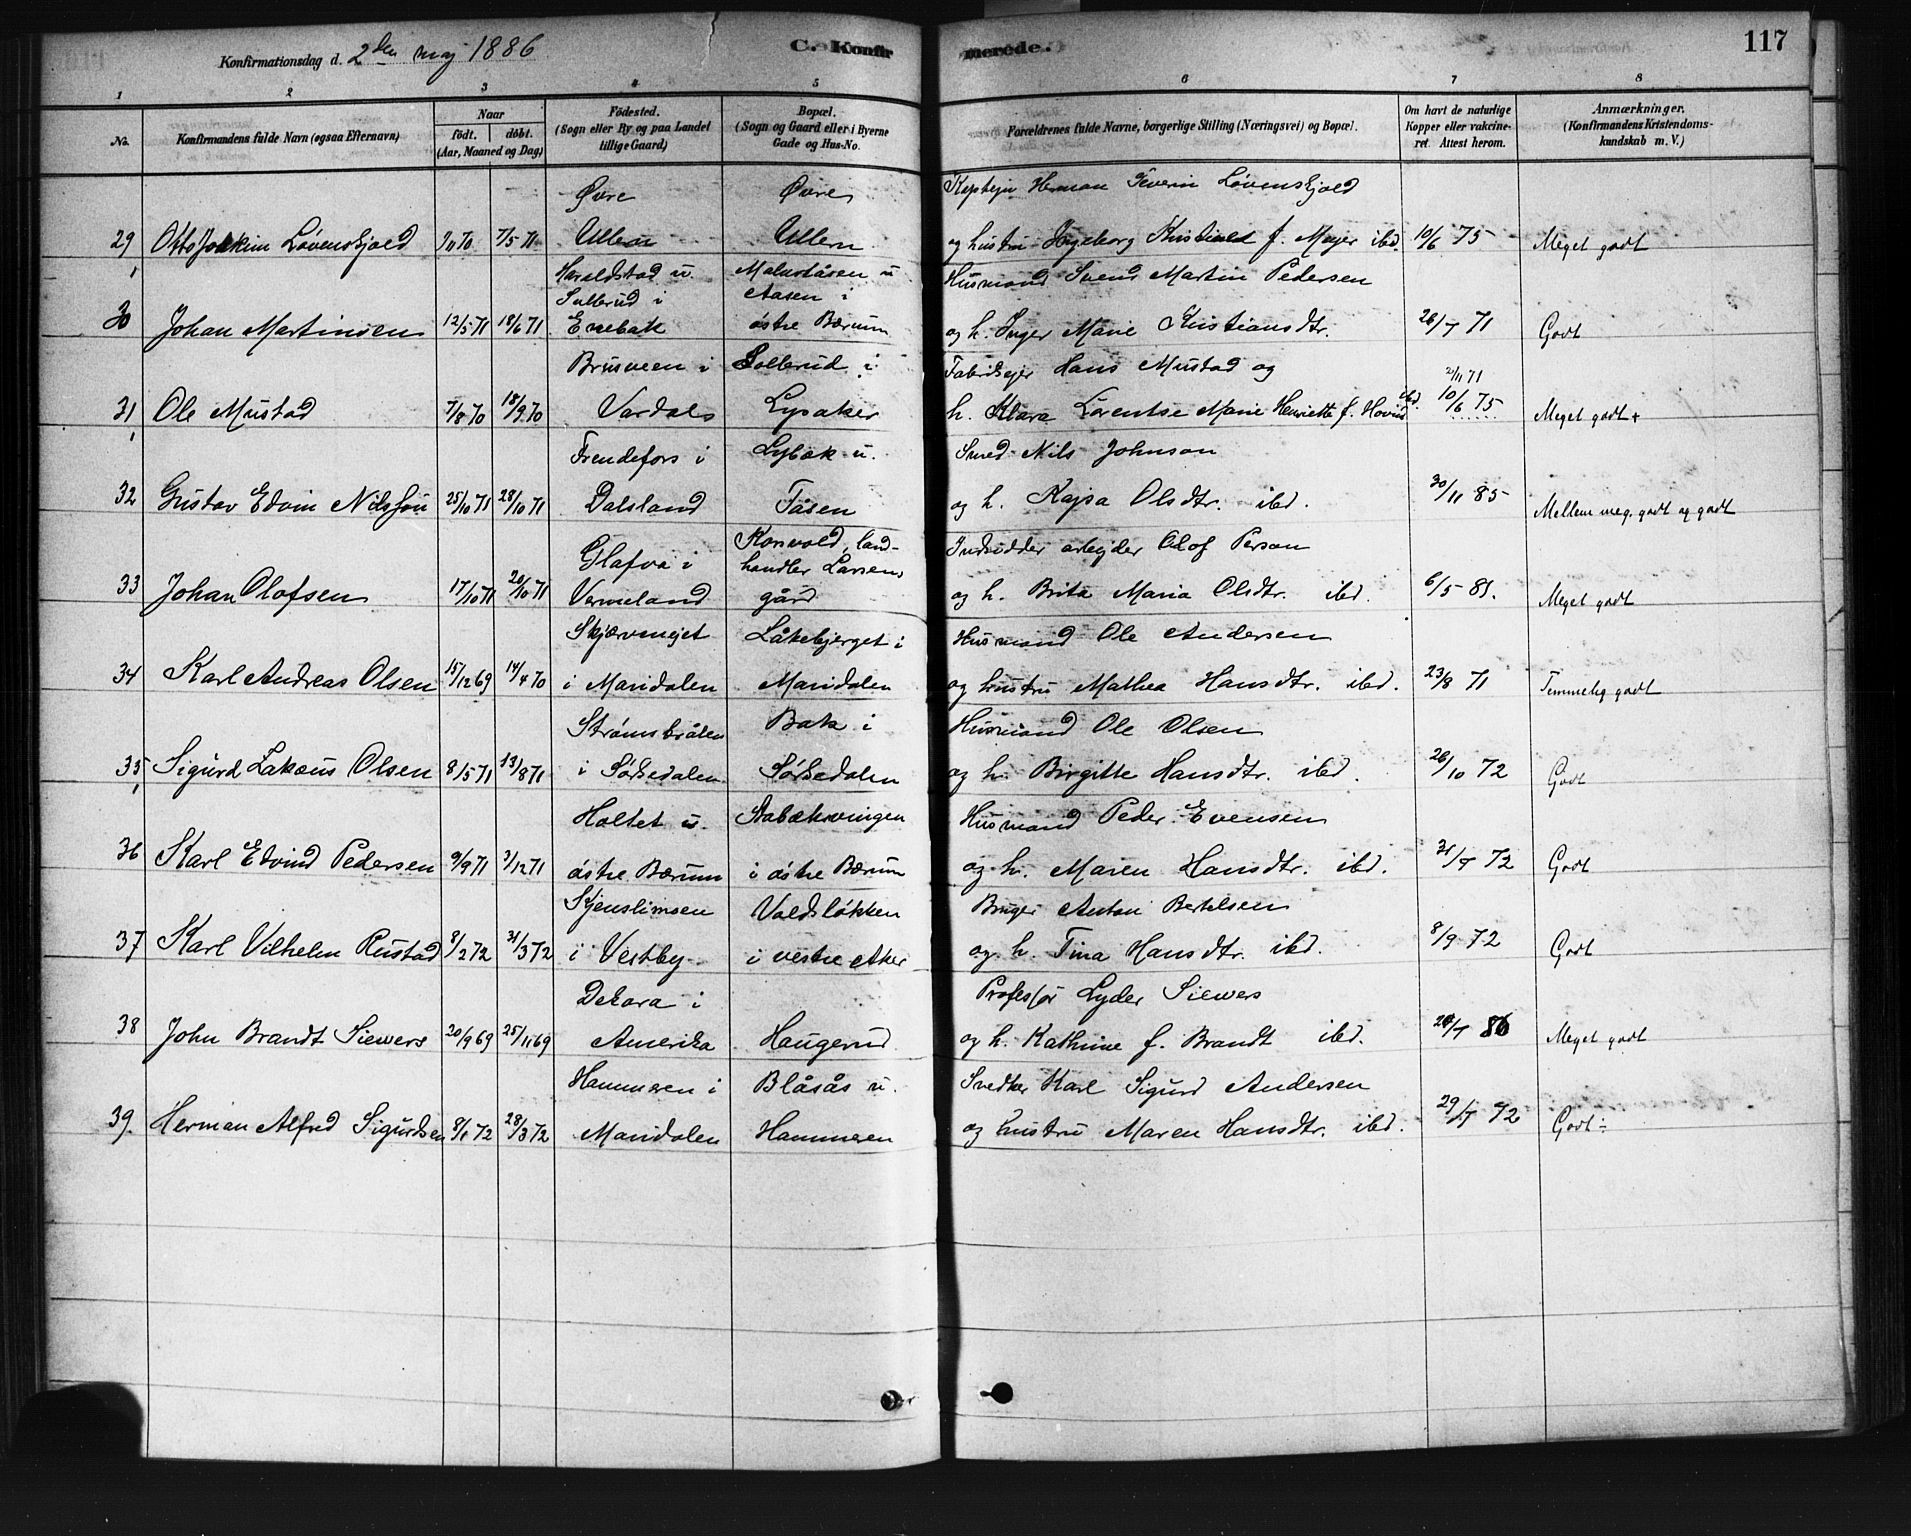 Konfirmationsdag d. 2den maj 1886
C. Konfirmerede.
117
1 2 3 4 5 6 7 8
No.
Konfirmandens fulde Navn (ogsaa Efternavn)
Naar
født. døbt.
(Aar, Maaned og Dag)
Födested.
(Sogn eller By og paa Landet
tillige Gaard)
Bopæl.
(Sogn og Gaard eller i Byerne
Gade og Hus-No.
Forældrenes fulde Navne, borgerlige Stilling (Næringsvei) og Bopæl.
Om havt de naturlige
Kopper eller vakcine-
ret. Attest herom.
Anmærkninger.
(Konfirmandens Kristendoms-
kundskab m. V.)
Øvre Øvre Kaptejn Herman Severin Løvenskjold
29 Otto Joakim Løvenskjold 7/5 71 Ullern Ullern og hustru Ingeborg f. Mejer ibd. 10/6 75 Meget godt
Haraldstad u. u Husmand Svend Martin Pedersen
i Aasen i
30 Johan Martinsen 12/5 71 18/6 71 Enebak østre Bærum og h. Inger Marie Kristiansdtr. 26/7 71 Godt
Brusveen i Sollerud i Fabrikejer Hans Mustad og
21/11 71
31 Ole Mustad 7/8 70 18/9 70 Vardals Lysaker h. Klara Lorentse Marie Henriette f. Hovind ibd. 10/6 75 Meget godt +
Frendefors i Lybæk u. Smed Nils Johnson
32 Gustav Edvin Nilsson 25/10 71 28/10 71 Dalsland Tåsen og h. Kajsa Olsdtr. ibd. 30/11 85 Mellem meg. godt og godt
Glafva i Korsvold, land- Inds. arbejder Olof Person
handler Larsens
33 Johan Olofsen 17/10 71 20/10 71 Vermeland gård og h. Brita Maria Olsdtr. ibd. 6/5 81. Meget godt
Skjærvenejet Låkebjerget i Husmand Ole Andersen
34 Karl Andreas Olsen 15/12 69 14/4 70 i Maridalen Maridalen og hustru Mathea Hansdtr. ibd. 23/8 71 Temmelig godt
Strømsbråten Bak i Husmand Ole Olsen
35 Sigurd Olsen 8/5 71 13/8 71 i Sørkedalen Sørkedalen og h. Birgitte Hansdtr. ibd. 26/10 72 Godt
Holtet u. Stabækvingen Husmand Peder Evensen
36 Karl Edvind Pedersen 9/9 71 3/12 71 østre Bærum i østre Bærum og h. Maren Hansdtr. ibd. 31/7 72 Godt
Voldsløkken Bruger Anton Bertelsen
37 Karl Vilhelm Rustad 8/2 72 31/3 72 i Vestby i vestre Aker og h. Tina Hansdtr. ibd. 8/9 72 Godt
Dekora i Professor Lyder Siewers
38 John Brandt Siewers 20/9 69 25/11 69 Amerika Haugerud og h. Kathrine f. Brandt ibd. 86 Meget godt
Hammeren i Blåsås u. Karl Sigurd Andersen
39. Herman Alfred Sigurdsen 8/1 72 28/3 72 Maridalen Hammeren og hustru Maren Hansdtr. ibd. 29/7 72 Godt ÷